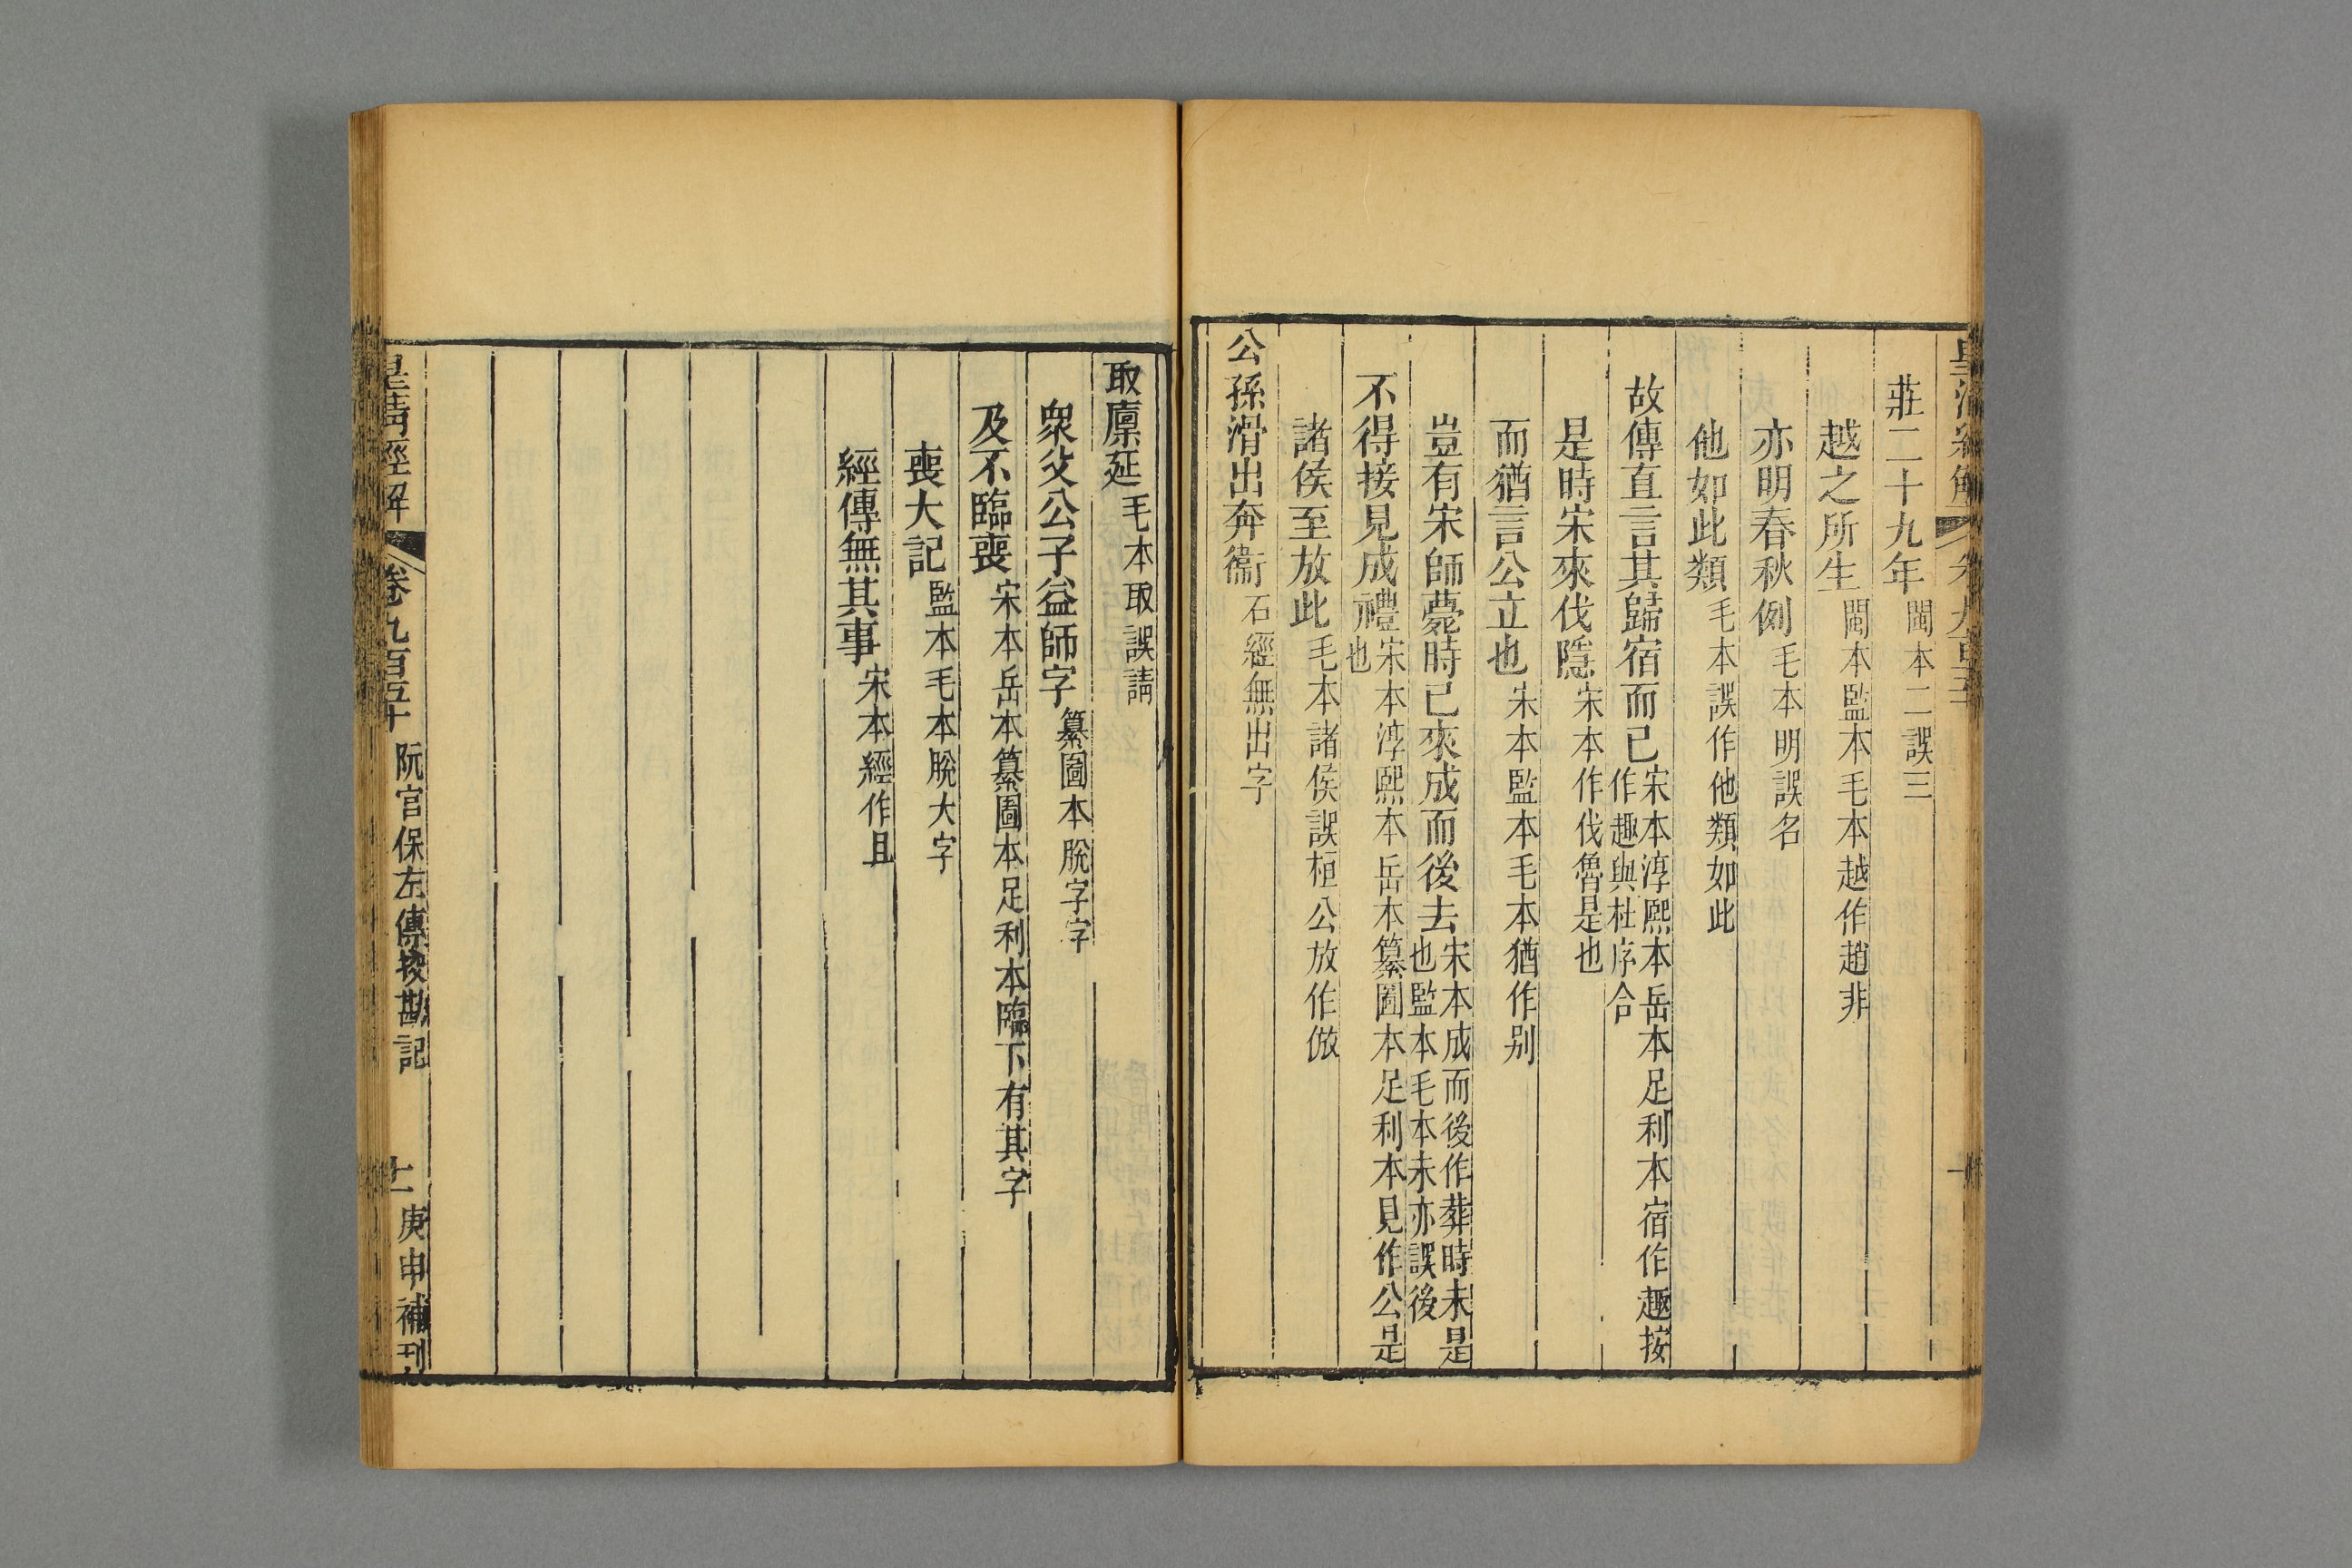 莊二十九年閩本二誤三
越之所生閩本監本毛本越作趙非
亦明春秋例毛本明誤名
他如此類毛本誤作他類如此
故傳直言其歸宿而已宋本淳熙本岳本足利本宿作趣按作趣與杜序合
是時宋來伐隱宋本作伐魯是也
而猶言公立也宋本監本毛本猶作别
豈有宋師薨時已來成而後去宋本成而後作葬時未是也監本毛本未亦誤後
不得接見成禮宋本淳熙本岳本纂圖本足利本見作公是也
諸侯至放此毛本諸侯誤桓公放作倣
公孫滑出奔衞石經無出字
取廩延毛本取誤請
衆父公子益師字纂圖本脫字字
及不臨喪宋本岳本纂圖本足利本臨下有其字
喪大記監本毛本脫大字
經傳無其事宋本經作且
皇清經解 卷九百五十 阮宮保左傳挍勘記 十一 庚申補刊